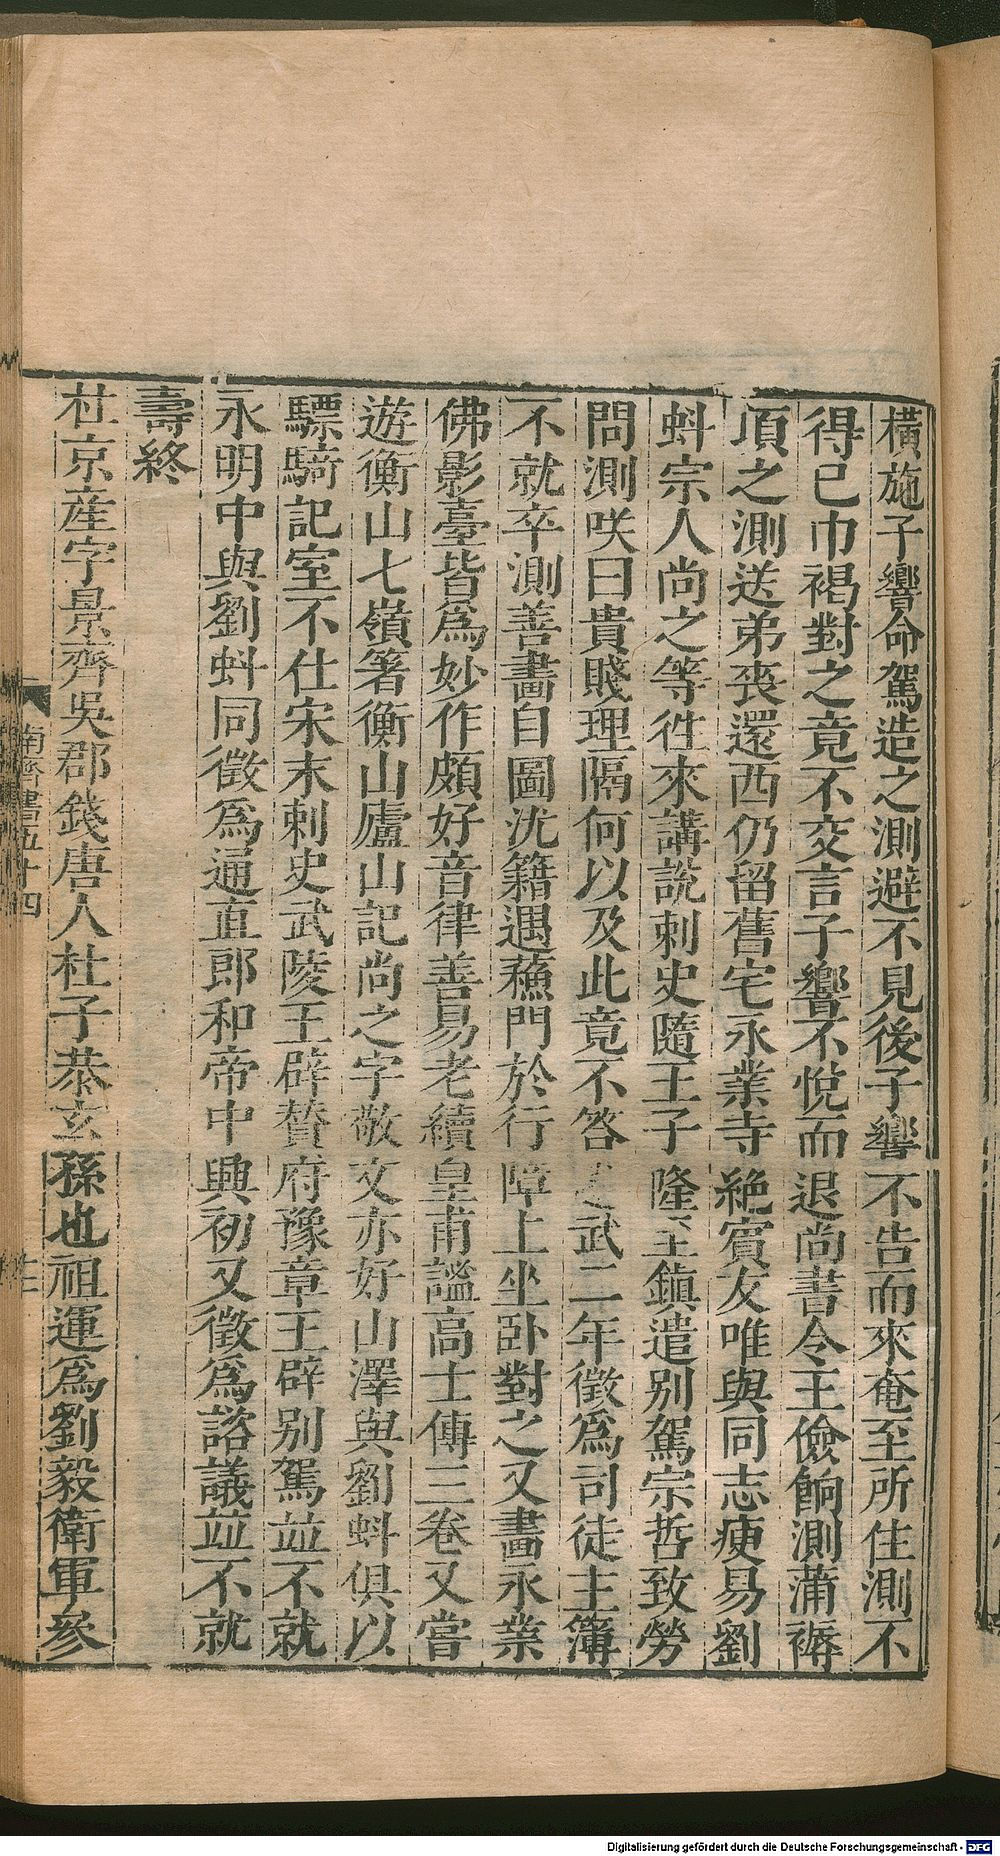 橫施子響命駕造之測避不見後子響不告而來奄至所住測不
得已巾褐對之竟不交言子響不悅而退尚書令王儉餉測蒲褥
頃之測送弟喪還西仍留舊宅永業寺絶賓友唯與同志庾易劉
蚪宗人尚之等徃來講説刺史隨王子隆至鎮遣别駕宗哲致勞
問測咲曰貴賤理隔何以及此竟不答建武二年徵爲司徒主簿
不就卒測善畫自圖阮籍遇蘓門於行障上坐卧對之又畫永業
佛影臺皆爲妙作頗好音律善易老續皇甫謐高士傳三卷又嘗
遊衡山七嶺箸衡山廬山記尚之字敬文亦好山澤與劉蚪俱以
驃騎記室不仕宋末刺史武陵王辟贊府豫章王辟别駕竝不就
永明中與劉蚪同徵爲通直郎和帝中興初又徵爲諮議竝不就
壽終
杜京産字景齊吳郡錢唐人杜子恭玄孫也祖運爲劉毅衛軍參
南齊書五十四
十二
Digitalisierung gefördert durch die Deutsche Forschungsgemeinschaft - DFG